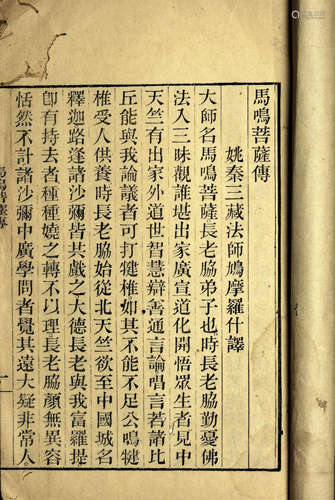 馬鳴菩薩傳
姚秦三藏法師鳩摩羅什譯
大師名馬鳴菩薩長老脇弟子也時長老脇勤憂佛
法入三昧觀誰堪出家廣宣道化開悟眾生者見中
天竺有出家外道世智慧辯善通言論唱言若諸比
丘能與我論議者可打犍椎如其不能不足公鳴犍
椎受人供養時長老脇始從北天竺欲至中國城名
釋迦路逢諸沙彌皆共戲之大德長老與我富羅提
卽有持去者種種嬈之轉不以理長老脇顏無異容
恬然不計諸沙彌中廣學問者覺其遠大疑非常人
馬鳴菩薩傳
一